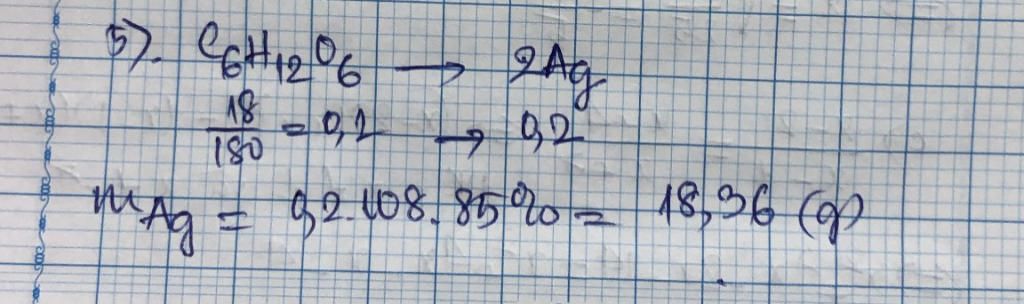 5). C₆H₁₂O₆ → 2Ag
18/180 = 0,1 → 0,2
mAg = 0,2.108.85% = 18,36 (g)